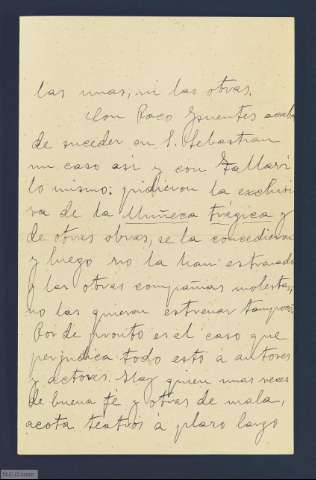 las unas, ni las otras.
Con Paco Fuentes acaba
de suceder en S. Sebastian
un caso asi y con Tallavi
lo mismo: pidieron la exclusi
va de la Muñeca trágica y
de otras obras, se la concedieron
y luego no la han estrenado
y las otras compañias molestas,
no las quieren estrenar tampoco.
Por de pronto es el caso que
perjudica todo esto á autores
y actores. Hay quien unas veces
de buena fé y otras de mala,
acota teatros á plazo largo